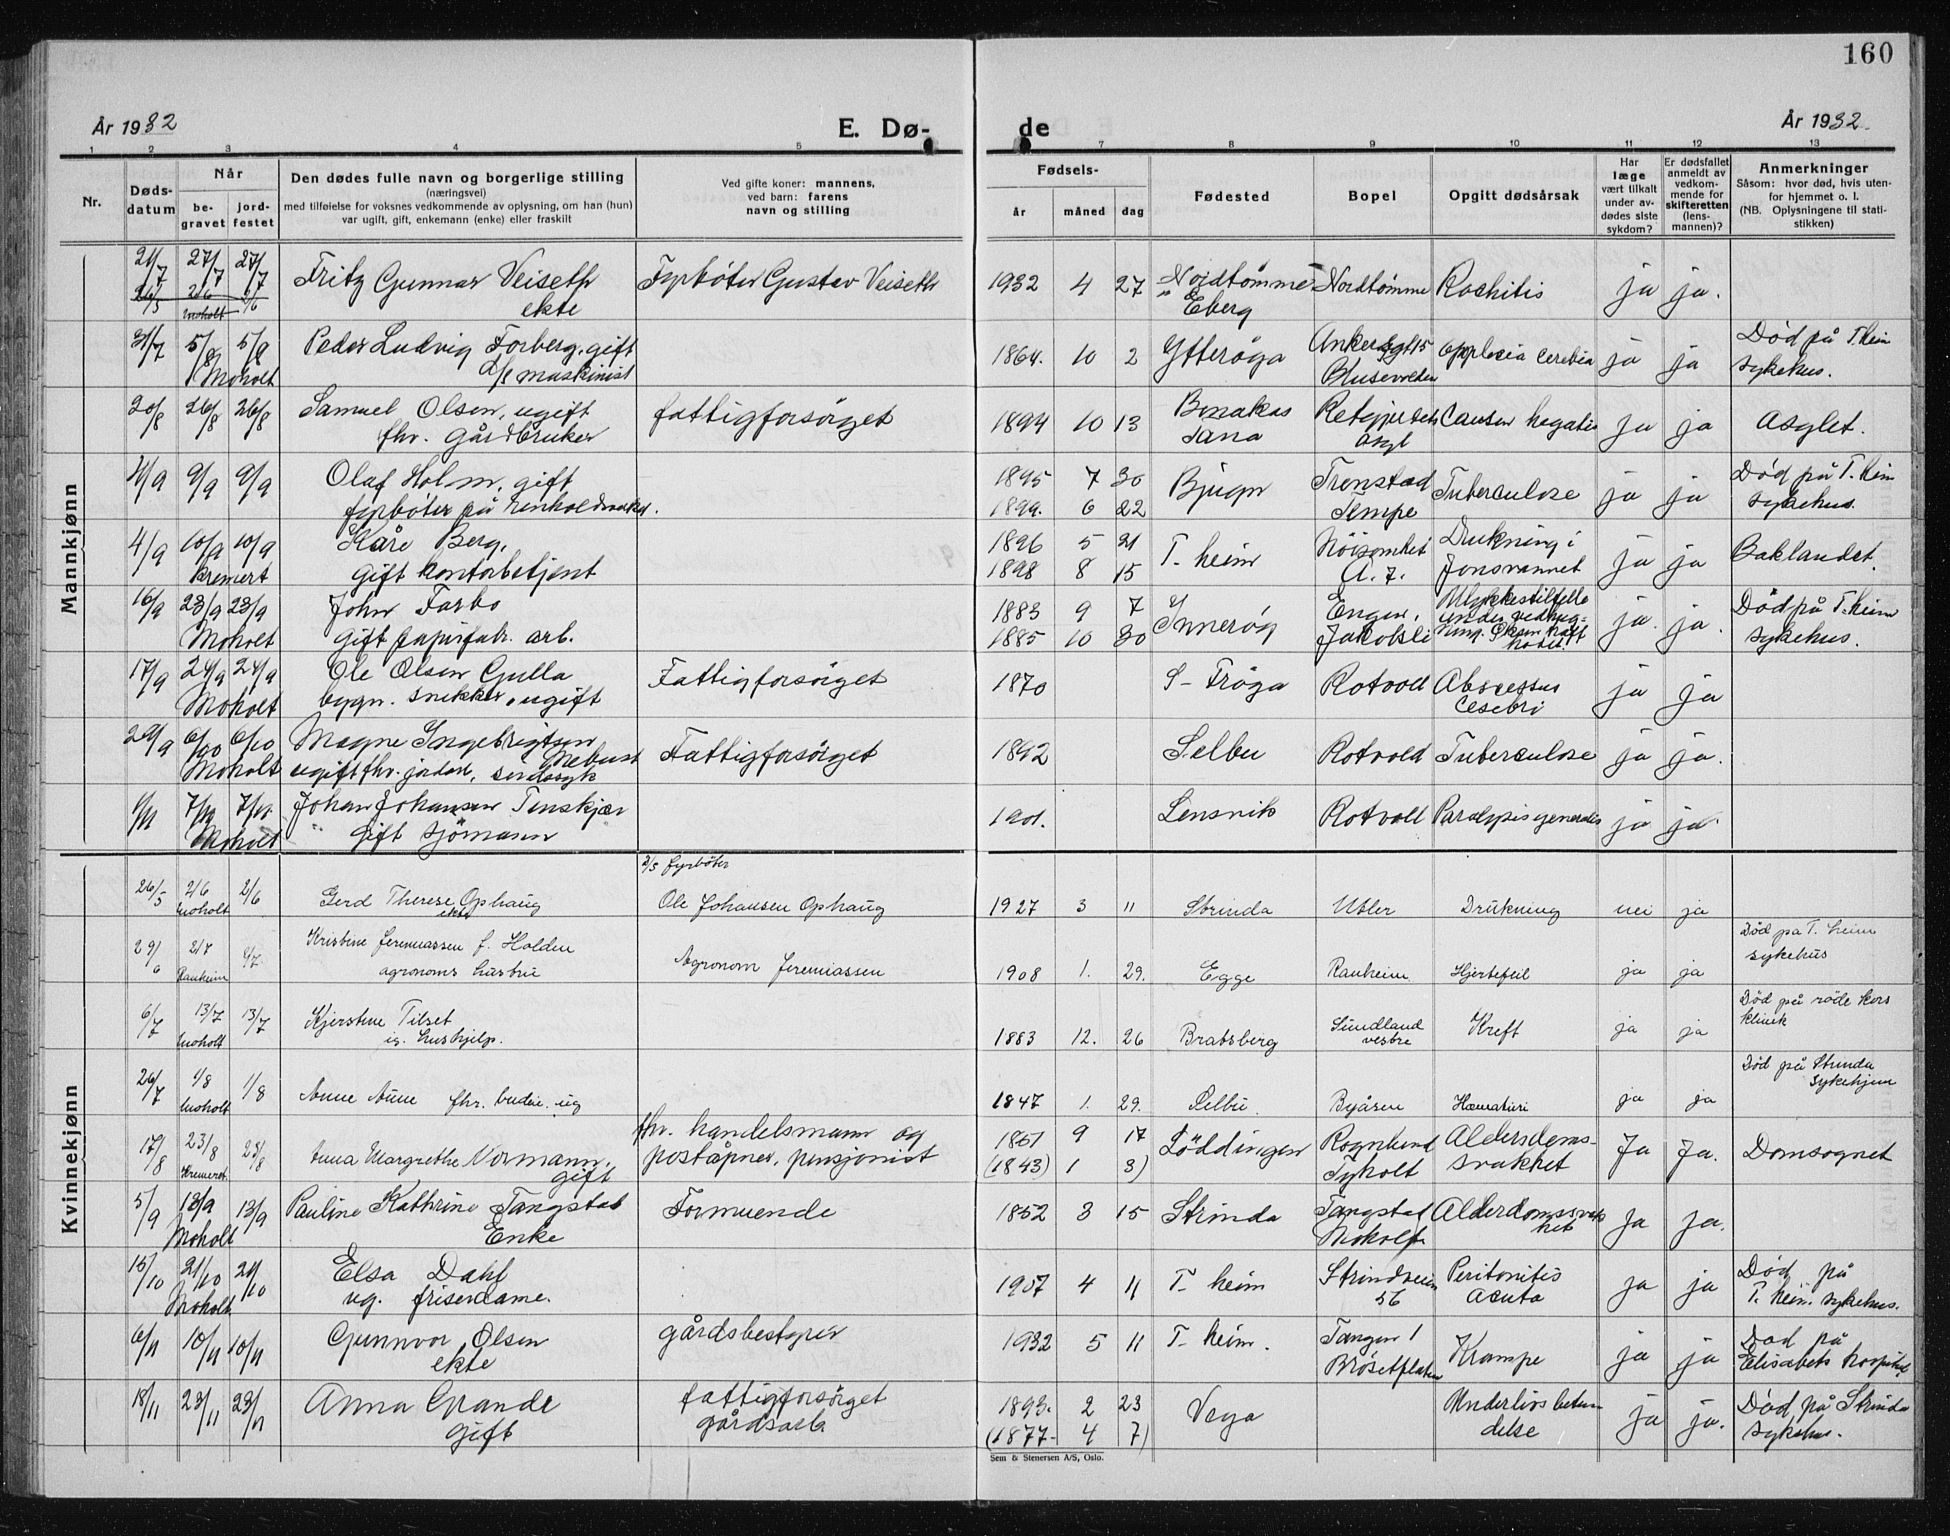 160
År 1932
E. Dø-
de
År 1932.
1 2 3 4 5 7 8 9 10 11 12 13
Nr.
Døds-
datum
Når
be-
gravet
jord-
festet
Den dødes fulle navn og borgerlige stilling
(næringsvei)
med tilføielse for voksnes vedkommende av oplysning, om han (hun)
var ugift, gift, enkemann (enke) eller fraskilt
Ved gifte koner: mannens,
ved barn: farens
navn og stilling
Fødsels-
år
måned
dag
Fødested
Bopel
Opgitt dødsårsak
Har
læge
vært tilkalt
under av-
dødes siste
sykdom?
Er dødsfallet
anmeldt av
vedkom-
mende for
skifteretten
(lens-
mannen)?
Anmerkninger
Såsom: hvor død, hvis uten-
for hjemmet o. l.
(NB. Oplysningene til stati-
stikken)
Mannkjønn
21/7 27/7 27/7 Fritz Gunnar Veiseth Fyrbøter Gustav Veiseth 1932 4 27 Nordtømme Nordtømme Rachitis ja ja.
26/5 2/6 2/6 ekte Eberg
Moholt
31/7 5/8 5/8 Peder Ludvig Forberg, gift 1864. 10 2 Ytterøya 15 ja ja Død på T.heim
Moholt maskinist sykehus.
20/8 26/8 26/8 Samuel Olsen, ugift fattigforsørget 1894 10 13 ja ja Asylet.
fhv. gårdbruker Tana
9/9 9/9 Olaf Holm, gift 1895 7 30 Bjugn Tronstad Tuberculose ja ja Død på T.heim
fyrbøter på 1899. 6 22 Tempe sykehus.
4/9 10/9 10/9 Kåre Berg, 1896 5 21 T. heim Nöisomhet Drukning i ja ja Baklandet.
Kremert gift kontorbetjent 1898 8 15 A. 7. Jonsvannet
16/9 23/9 23/9 John Farbo 1883 9 7 Inderøy Engen, Ulykkestilfelle ja. ja. Död på T.heim
Moholt gift papirfabr. arb. 1885 10 30 Jakobsli under sykehus.
17/9 24/9 24/9 Ole Olsen Gulla Fattigforsörget 1870 S- Fröya Rotvoll Abscessus ja ja
Moholt bygn. snekker, ugift Cerebri
29/9 6/10 6/10 Magne Ingebrigtsen Mebust Fattigforsörget 1892 Selbu Rotvold Tuberculose ja ja.
Moholt ugift fhv. sindssyk
7/11 7/11 Johan Johansen Tenskjær 1901. Lensvik Rotvoll Paralysis generales ja ja.
Moholt gift sjömann
Kvinnekjønn
fyrbøter
26/5 2/6 2/6 Gerd Therese Ophaug Ole Johansen Ophaug 1927 3 11 Strinda Utler Drukning nei ja
Moholt ekte
29/6 2/7 2/7 Kristine Jeremiassen f. Holden Agronom Jeremiassen 1908 1. 29. Egge Ranheim Hjertefeil ja ja Död på T. heim
Ranheim agronoms hustru sykehus
6/7 13/7 13/7 Kjerstine Tilset 1883 12. 26 Bratsberg Sundland Kreft ja ja Död på röde kors
Moholt ug. hushjelp. vestre klinik
26/7 1/8 1/8 Anne Aune fhv. budeie. ug 1847 1. 29. Selbu Byåsen Hæmaturi ja ja Död på Strinda
Moholt sykehjem
17/8 23/8 23/8 Anna Margrethe Normann. fhv. handelsmann og 1851 9 17 Löddingen Rognlund Alderdoms- Ja Ja. Domsognet
Kremeret gift poståpner, pensjonist (1843) 1 3) Tyholt svakhet
5/9 13/9 13/9 Pauline Kathrine Tangstad Formuende 1852 3 15 Strinda Tangstad Ja Ja.
Moholt Enke Moholt
15/10 21/10 21/10 Elsa Dahl 1907 4 11 T- heim Strindveien Peritonitis ja ja Död på
Moholt ug. friserdame. 56 Acuta T. heim. sykehus.
6/11 10/11 10/11 Gunnvor Olsen gårdsbestyrer 1932 5 11 T- heim. Krampe ja ja Död på
ekte Brøsetflaten Elisabets hospital
18/11 23/11 23/11 Anna Grande fattigforsörget 1893. 2 23 Vega Underlivsbeten- ja ja. Død på Strinda
gift gårdsarb. (1877- 4 7) delse sykehus.
Sem & Stenersen A/S, Oslo.